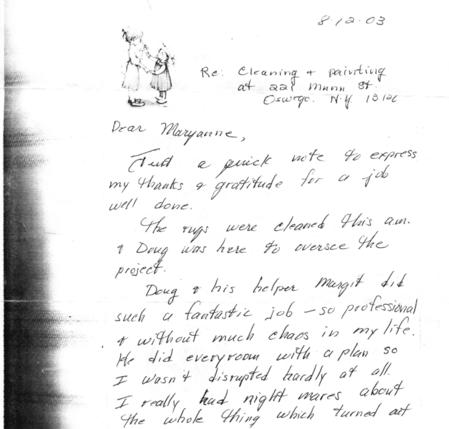 8-12-03
Re: Cleaning + painting
at 221 Munn St
Oswego. N.Y 13126
Dear Maryanne,
Just a quick note to express
my thanks & gratitude for a job
well done.
The rugs were cleaned this am.
& Doug was here to oversee the
project.
Doug & his helper Margit did
such a fantastic job – so professional
& without much chaos in my life.
He did everyroom with a plan so
I wasn't disrupted hardly at all.
I really had night mares about
the whole thing which turned out